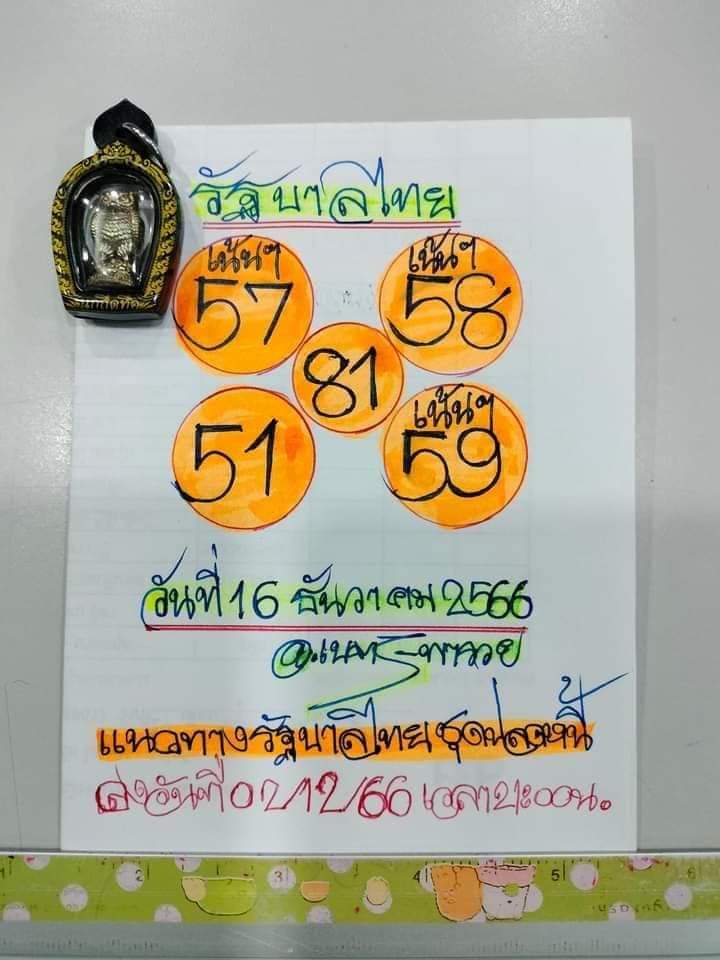 รัฐบาลไทย
เน้นๆ
57
เน้นๆ
58
81
51
เน้นๆ
59
วันที่ 16 ธันวาคม 2566
แนวทางรัฐบาลไทยชุดปลดหนี้
ส่งวันที่ 02/12/66 เวลา
1 2 3 4 5 6